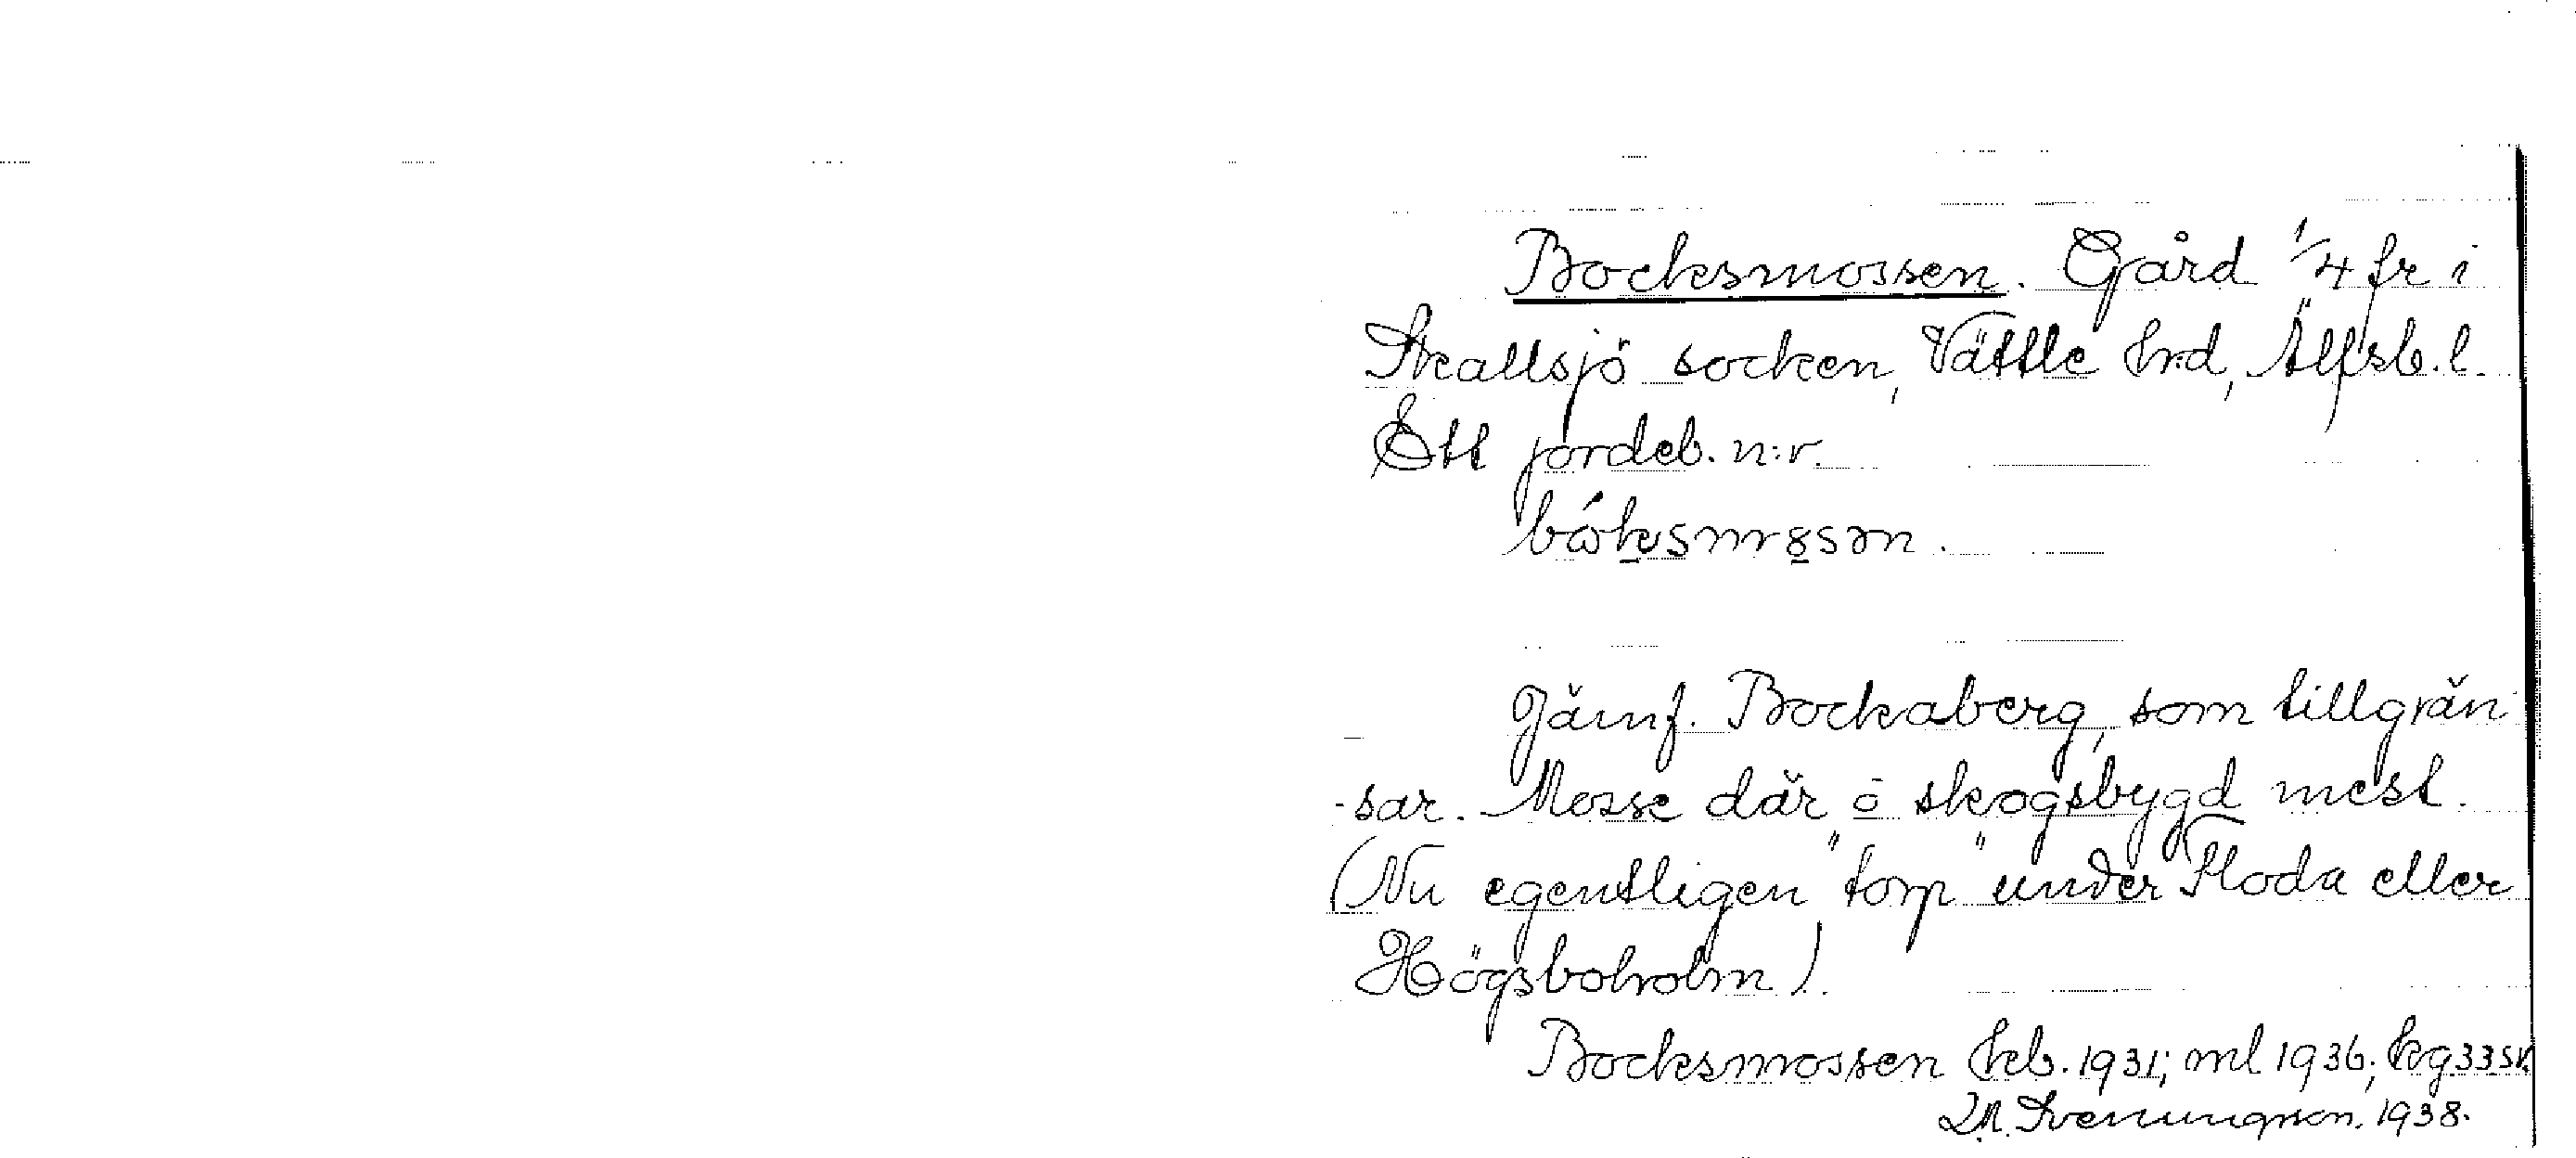 Bocksmossen. Gård 1/4 fr i
Skallsjö socken, Vättle hrd, Älfsb. l.
Ett jordeb. n:r.
Jämf. Bockaberg, som tillgrän
-sar. Mosse där o skogsbygd mest.
(Nu egentligen "torp" under Floda eller
Högsboholm).
Bocksmossen kb. 1931; ml 1936;
1938.